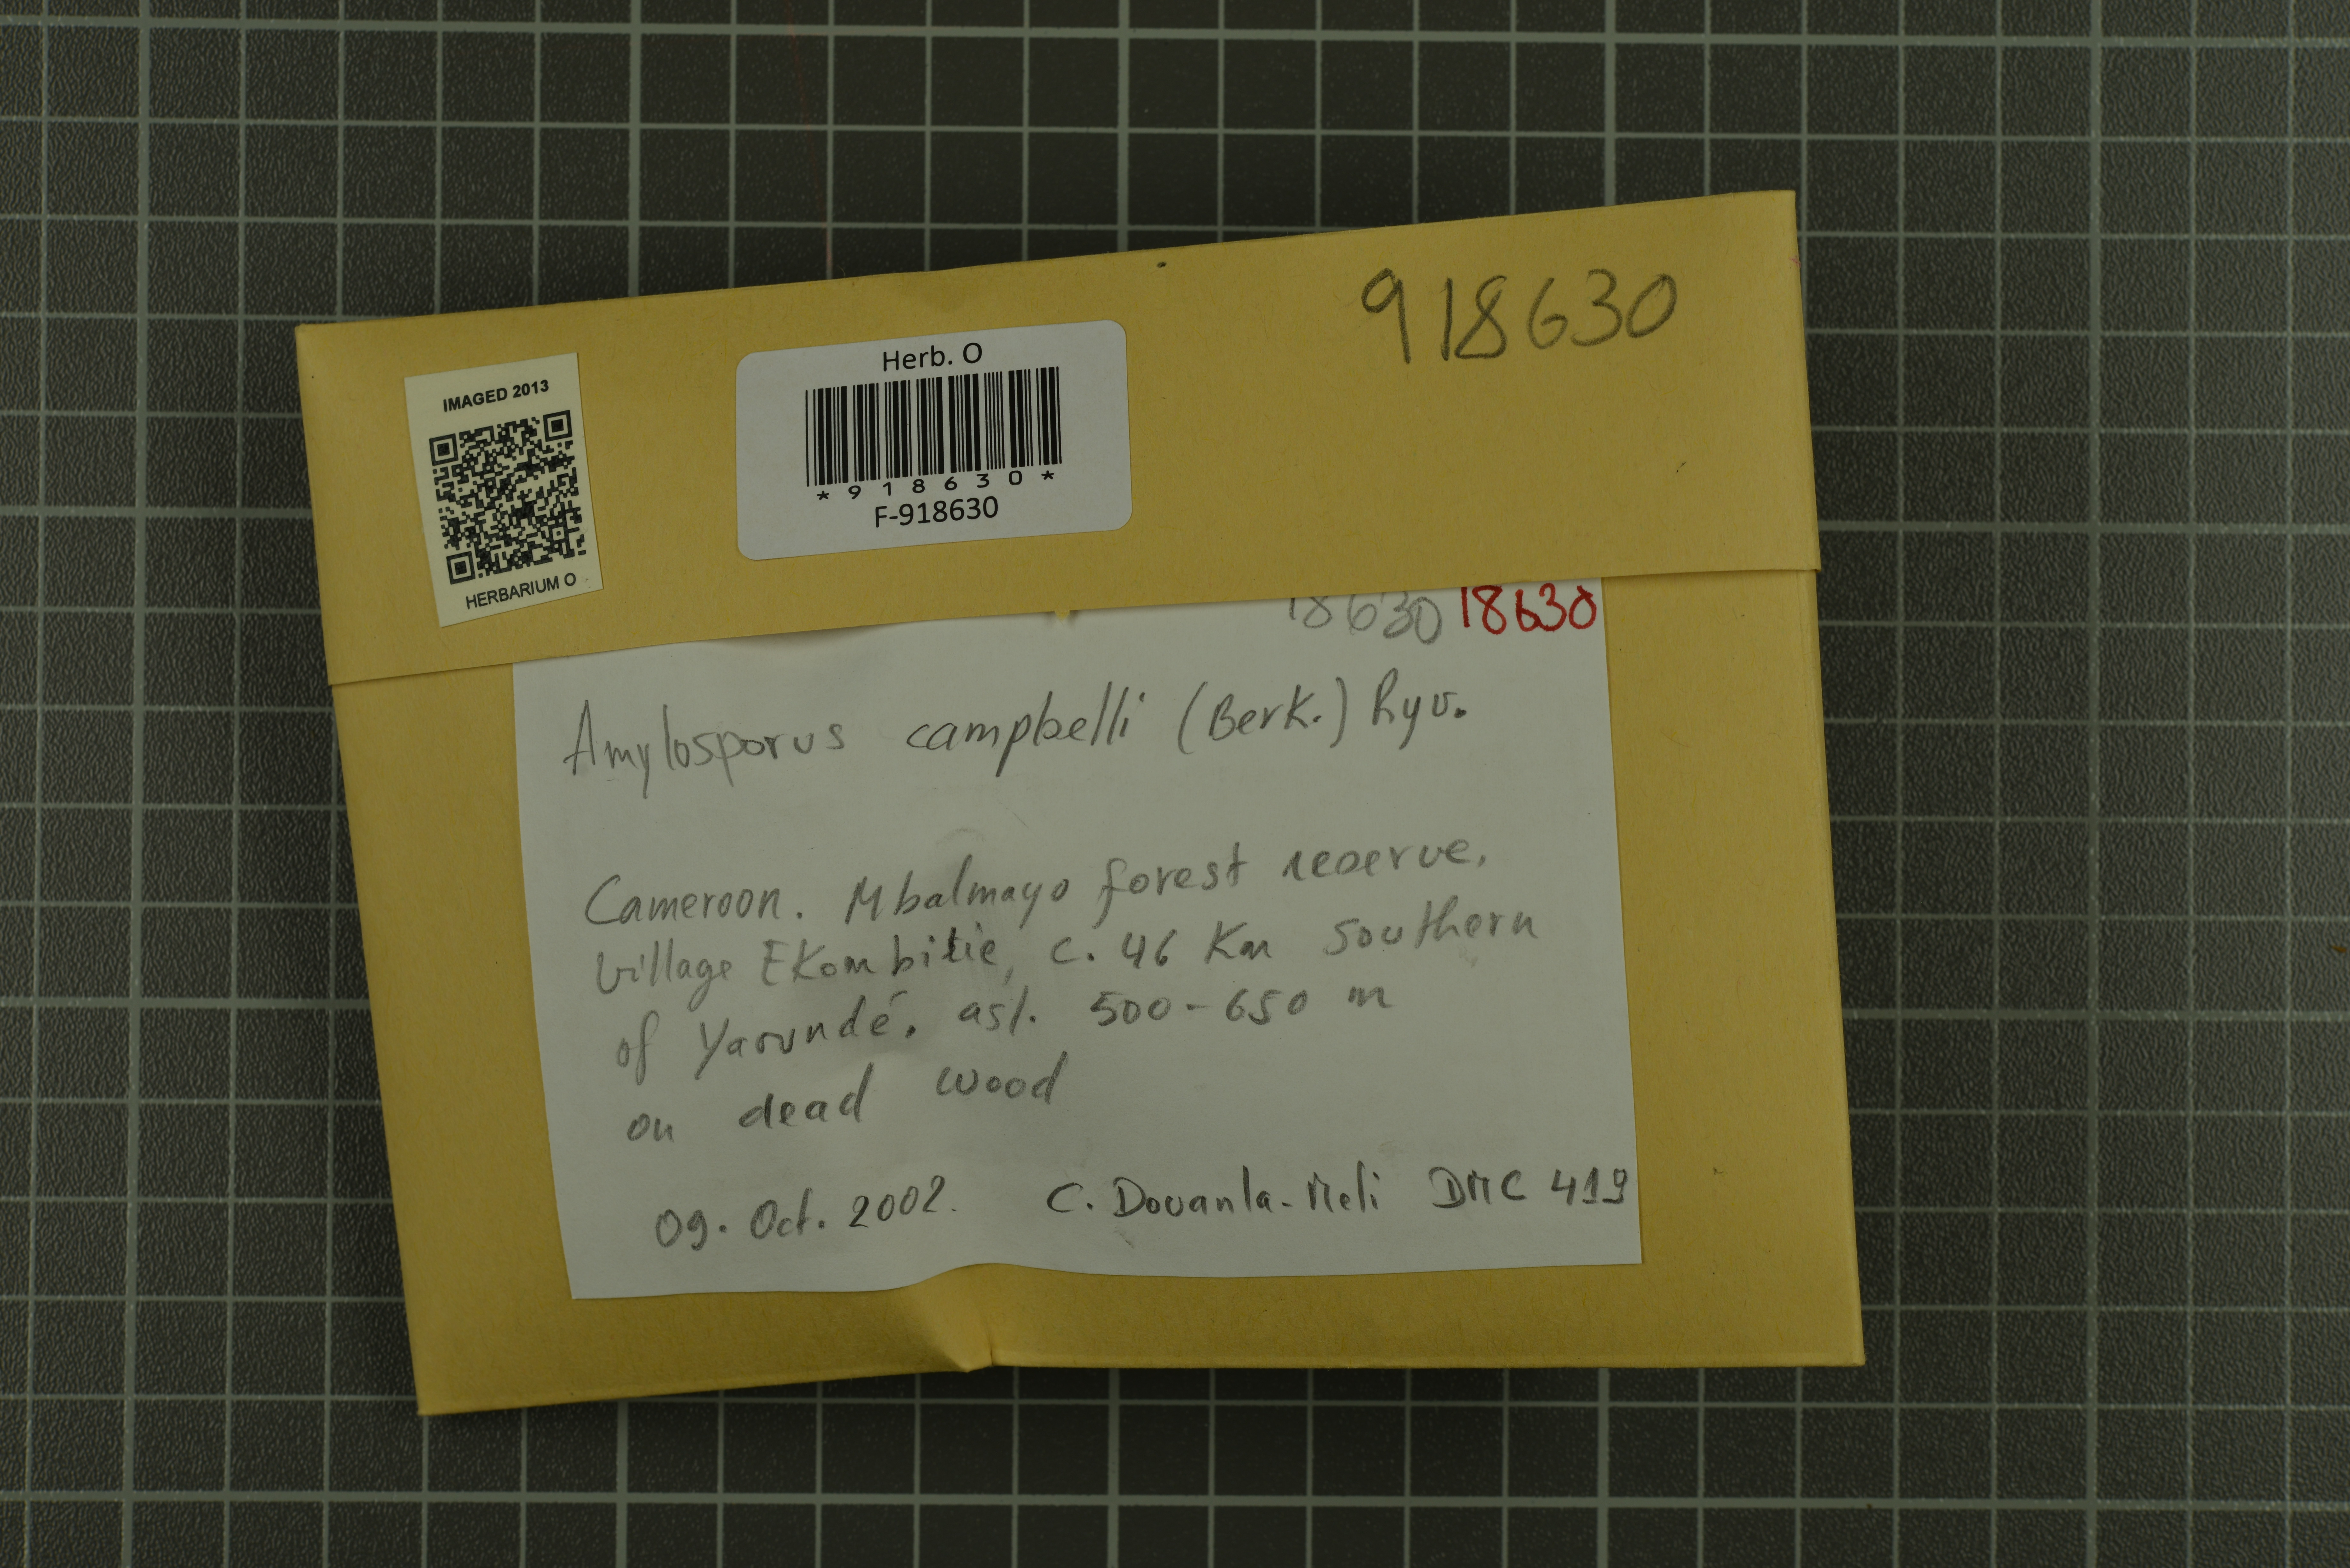 918630
IMAGED 2013
HERBARIUM O
Herb. O
*918630*
F-918630
18630 18630
Amylosporus campbelli (Berk.) Ryv.
Cameroon. Mbalmayo forest reserve.
village Ekombitié, c. 46 Km southern
of Yaoundé. asl. 500-650 m
on dead wood
09. Oct. 2002. C. Douanla-Meli DMC 419